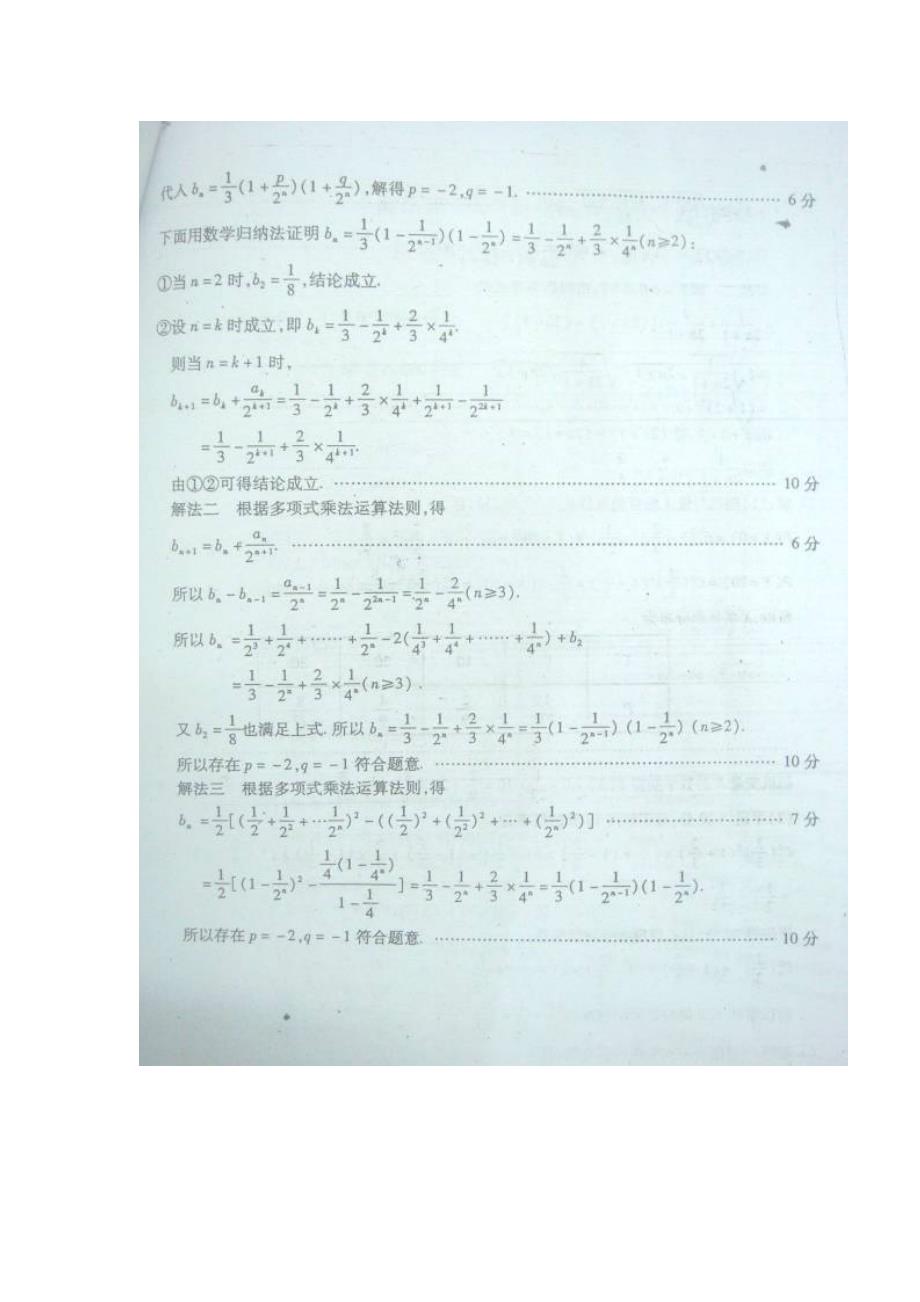 代入 bₙ = 1/3(1 + p/2ⁿ)(1 + q/2ⁿ),解得 p = -2,q = -1. …… 6分
下面用数学归纳法证明 bₙ = 1/3(1 - 1/2ⁿ⁻¹)(1 - 1/2ⁿ) = 1/3 - 1/2ⁿ + 2/3 × 1/4ⁿ(n≥2):
①当 n = 2 时,b₂ = 1/8,结论成立.
②设 n = k 时成立,即 bₖ = 1/3 - 1/2ᵏ + 2/3 × 1/4ᵏ.
则当 n = k + 1 时,
bₖ₊₁ = bₖ + aₖ/2ᵏ⁺¹ = 1/3 - 1/2ᵏ + 2/3 × 1/4ᵏ + 1/2ᵏ⁺¹ - 1/2²ᵏ⁺¹
= 1/3 - 1/2ᵏ⁺¹ + 2/3 × 1/4ᵏ⁺¹.
由①②可得结论成立. …… 10分
解法二 根据多项式乘法运算法则,得
bₙ₊₁ = bₙ + aₙ/2ⁿ⁺¹. …… 6分
所以 bₙ - bₙ₋₁ = aₙ₋₁/2ⁿ = 1/2ⁿ - 1/2²ⁿ⁻¹ = 1/2ⁿ - 2/4ⁿ(n≥3).
所以 bₙ = 1/2³ + 1/2⁴ + …… + 1/2ⁿ - 2(1/4³ + 1/4⁴ + …… + 1/4ⁿ) + b₂
= 1/3 - 1/2ⁿ + 2/3 × 1/4ⁿ(n≥3).
又 b₂ = 1/8也满足上式. 所以 bₙ = 1/3 - 1/2ⁿ + 2/3 × 1/4ⁿ = 1/3(1 - 1/2ⁿ⁻¹)(1 - 1/2ⁿ)(n≥2).
所以存在 p = -2,q = -1 符合题意. …… 10分
解法三 根据多项式乘法运算法则,得
bₙ = 1/2[(1/2 + 1/2² + …1/2ⁿ)² - ((1/2)² + (1/2²)² + … + (1/2ⁿ)²)] …… 7分
= 1/2[(1 - 1/2ⁿ)² - (1/4(1 - 1/4ⁿ))/(1 - 1/4)] = 1/3 - 1/2ⁿ + 2/3 × 1/4ⁿ = 1/3(1 - 1/2ⁿ⁻¹)(1 - 1/2ⁿ).
所以存在 p = -2,q = -1 符合题意. …… 10分